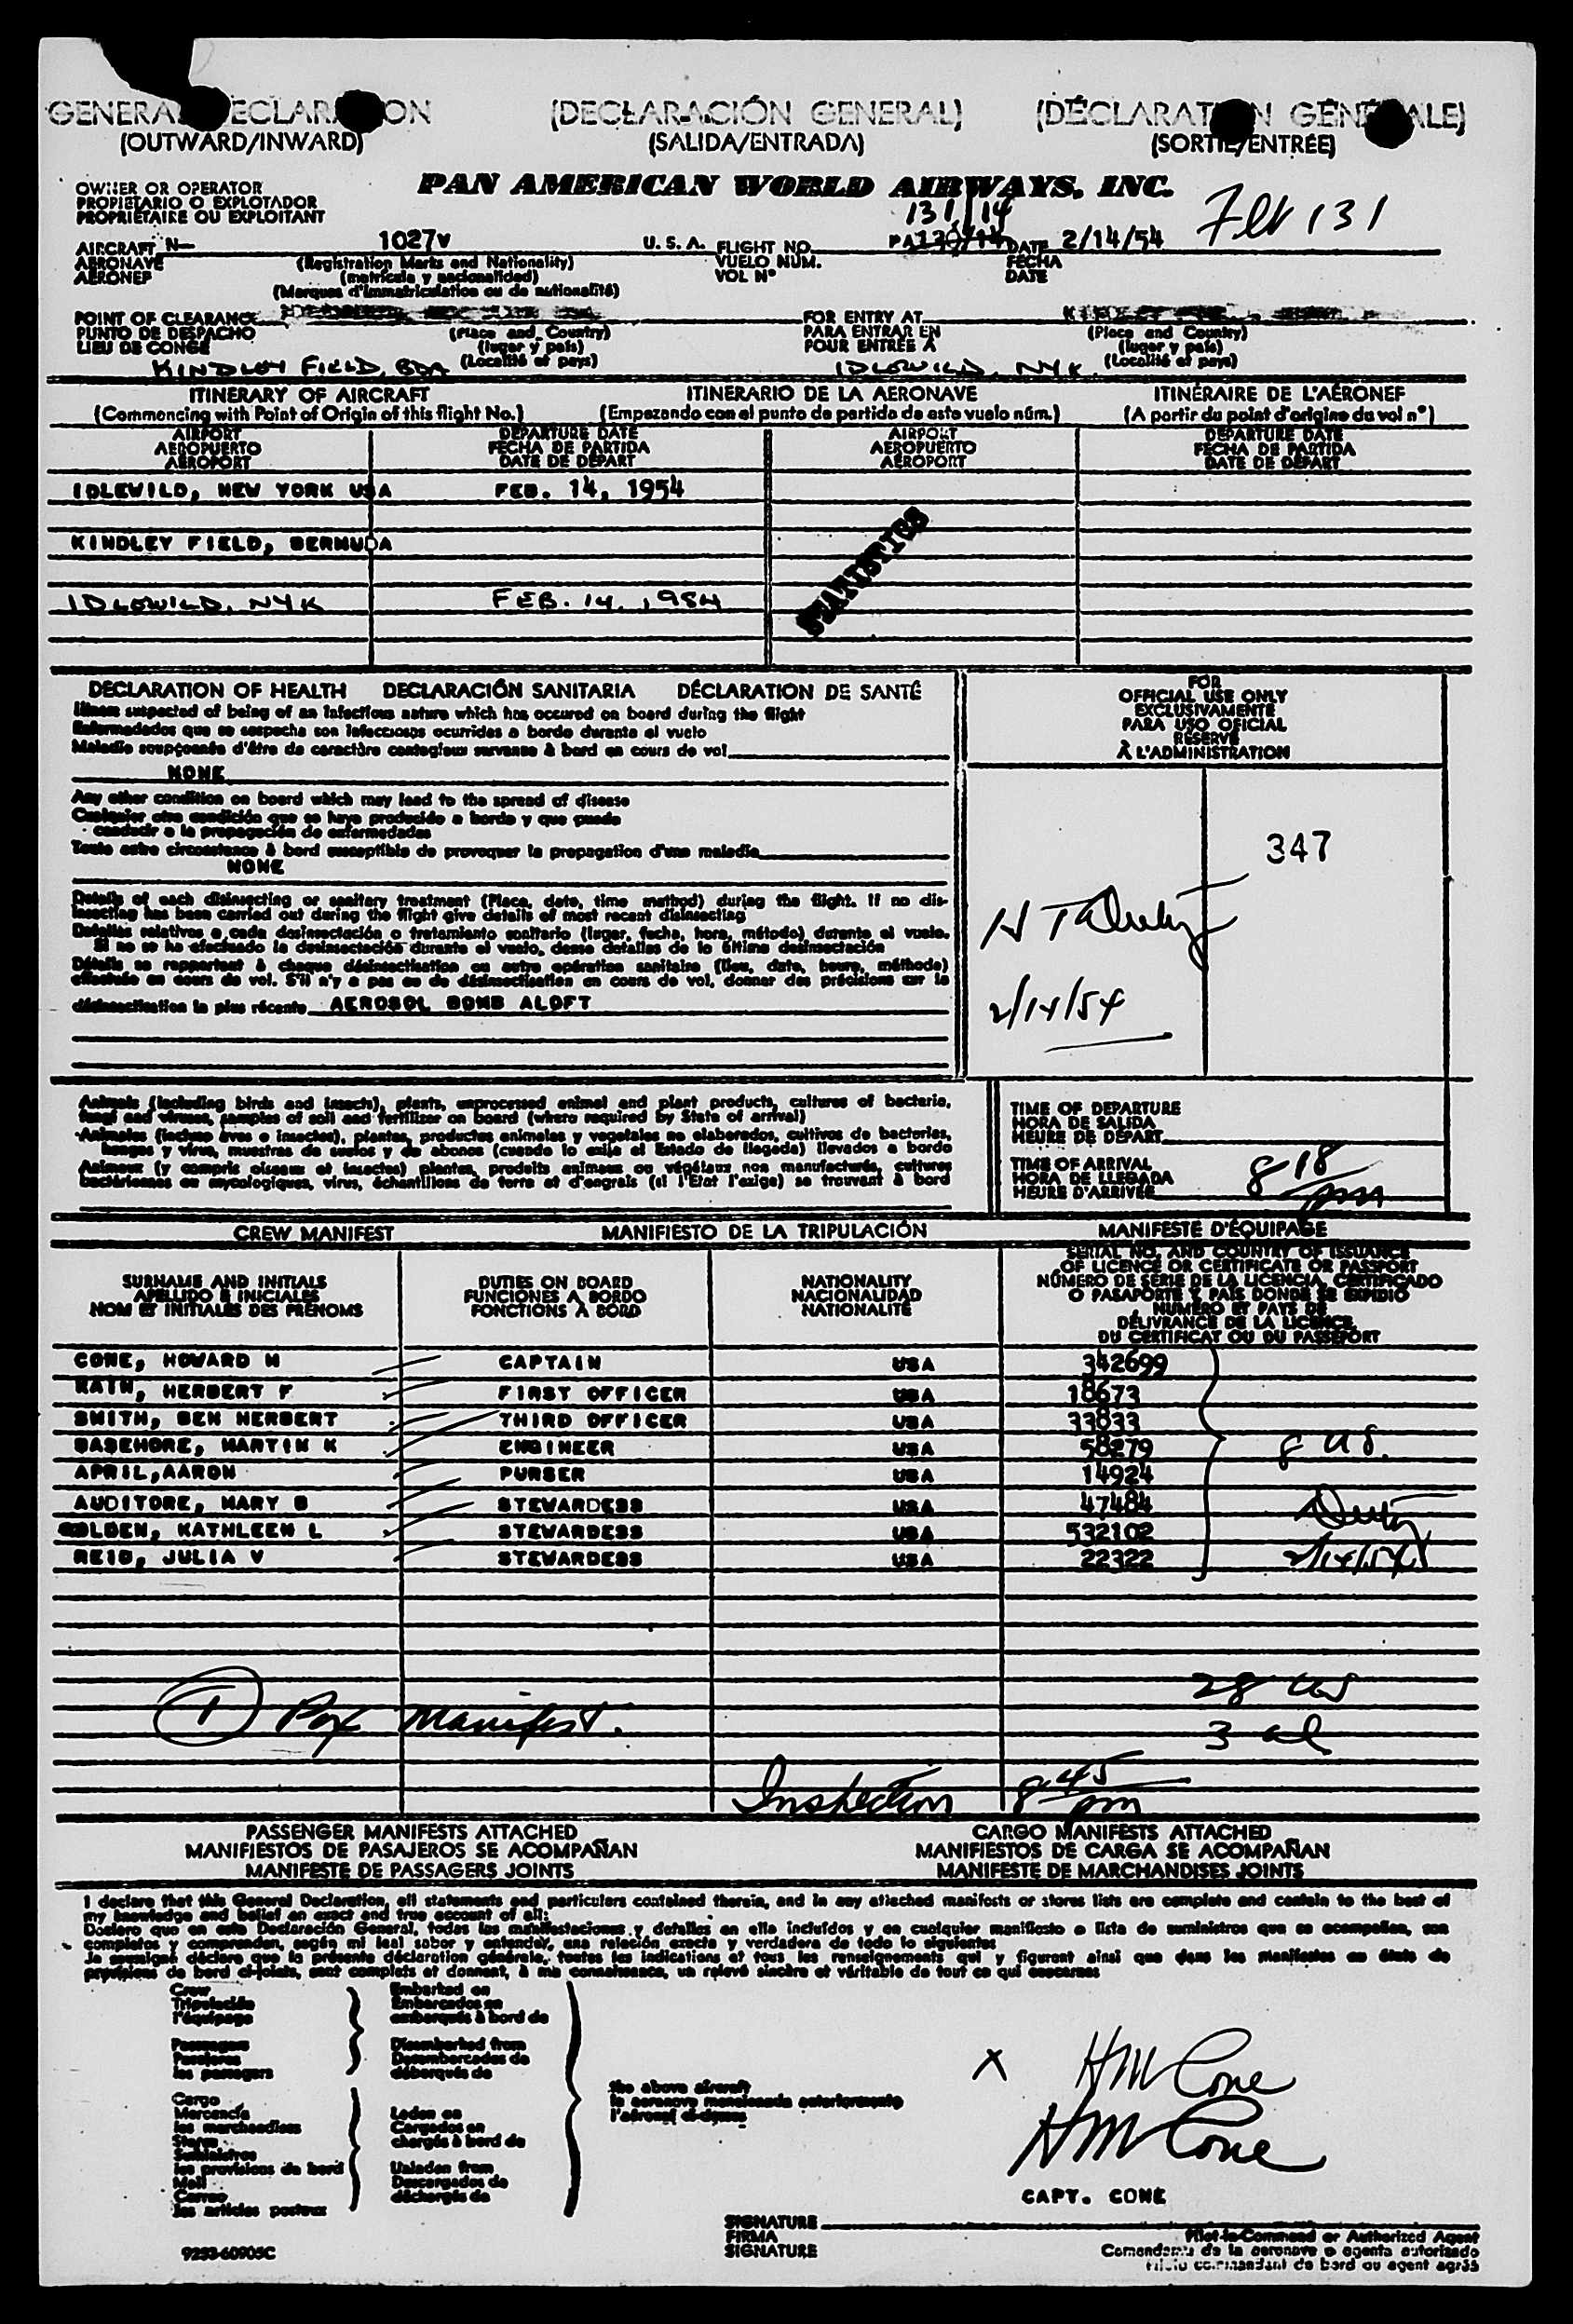 GENERAL DECLARATION (DECLARACIÓN GENERAL) (DÉCLARATION GÉNÉRALE)
(OUTWARD/INWARD) (SALIDA/ENTRADA) (SORTIE/ENTRÉE)
OWNER OR OPERATOR PAN AMERICAN WORLD AIRWAYS, INC.
PROPIETARIO O EXPLOTADOR
PROPRIÉTAIRE OU EXPLOITANT 131/14 Flt 131
AIRCRAFT N- 1027V U. S. A. FLIGHT NO. PA DATE 2/14/54
AERONAVE (Registration Marks and Nationality) VUELO NUM. FECHA
AÉRONEF (matrícula y nacionalidad) VOL N° DATE
(Marques d'immatriculation ou de nationalité)
POINT OF CLEARANCE FOR ENTRY AT
PUNTO DE DESPACHO (Place and Country) PARA ENTRAR EN (Place and Country)
LIEU DE CONGÉ (lugar y país) POUR ENTRÉE À (lugar y país)
KINDLEY FIELD, BDA (Localité et pays) IDLEWILD, NYK (Localité et pays)
ITINERARY OF AIRCRAFT ITINERARIO DE LA AERONAVE ITINÉRAIRE DE L'AÉRONEF
(Commencing with Point of Origin of this flight No.) (Empezando con el punto de partida de este vuelo núm.) (A partir du point d'origine du vol n°)
AIRPORT DEPARTURE DATE AIRPORT DEPARTURE DATE
AEROPUERTO FECHA DE PARTIDA AEROPUERTO FECHA DE PARTIDA
AÉROPORT DATE DE DÉPART AÉROPORT DATE DE DÉPART
IDLEWILD, NEW YORK USA FEB. 14, 1954
STATISTICS
KINDLEY FIELD, BERMUDA
IDLEWILD, NYK FEB. 14, 1954
DECLARATION OF HEALTH DECLARACIÓN SANITARIA DÉCLARATION DE SANTÉ
Illness suspected of being of an infectious nature which has occured on board during the flight
Enfermedades que se sospecha son infecciosas ocurridas a bordo durante el vuelo
Maladie soupçonnée d'être de caractère contagieux survenue à bord en cours de vol
NONE
Any other condition on board which may lead to the spread of disease
Cualquier otra condición que se haya producido a bordo y que puede
conducir a la propagación de enfermedades
Toute autre circonstance à bord susceptible de provoquer la propagation d'une maladie
NONE
Details of each disinsecting or sanitary treatment (Place, date, time method) during the flight. If no dis-
insecting has been carried out during the flight give details of most recent disinsecting
Detalles relativos a cada desinsectación o tratamiento sanitario (lugar, fecha, hora, método) durante el vuelo.
Si no se ha efectuado la desinsectación durante el vuelo, dense detalles de la última desinsectación
Détails se rapportant à chaque désinsectisation ou autre opération sanitaire (lieu, date, heure, méthode)
effectuée en cours de vol. S'il n'y a pas eu de désinsectisation en cours de vol, donner des précisions sur la
désinsectisation la plus récente AEROSOL BOMB ALOFT
FOR
OFFICIAL USE ONLY
EXCLUSIVAMENTE
PARA USO OFICIAL
RÉSERVÉ
À L'ADMINISTRATION
347
2/14/54
Animals (including birds and insects), plants, unprocessed animal and plant products, cultures of bacteria,
fungi and viruses, samples of soil and fertilizer on board (where required by State of arrival)
Animales (incluso aves e insectos), plantas, productos animales y vegetales no elaborados, cultivos de bacterias,
hongos y virus, muestras de suelos y de abonos (cuando lo exija el Estado de llegada) llevados a bordo
Animaux (y compris oiseaux et insectes) plantes, produits animaux ou végétaux non manufacturés, cultures
bactériennes ou mycologiques, virus, échantillons de terre et d'engrais (si l'Etat l'exige) se trouvant à bord
TIME OF DEPARTURE
HORA DE SALIDA
HEURE DE DÉPART
TIME OF ARRIVAL
HORA DE LLEGADA 8 18 pm
HEURE D'ARRIVÉE
CREW MANIFEST MANIFIESTO DE LA TRIPULACIÓN MANIFESTE D'ÉQUIPAGE
SURNAME AND INITIALS DUTIES ON BOARD NATIONALITY SERIAL NO. AND COUNTRY OF ISSUANCE
APELLIDO E INICIALES FUNCIONES A BORDO NACIONALIDAD OF LICENCE OR CERTIFICATE OR PASSPORT
NOM ET INITIALES DES PRÉNOMS FONCTIONS À BORD NATIONALITÉ NÚMERO DE SERIE DE LA LICENCIA, CERTIFICADO
O PASAPORTE Y PAÍS DONDE SE EXPIDIÓ
NUMÉRO ET PAYS DE
DÉLIVRANCE DE LA LICENCE,
DU CERTIFICAT OU DU PASSEPORT
CONE, HOWARD M CAPTAIN USA 342699
RATH, HERBERT F FIRST OFFICER USA 18673
SMITH, BEN HERBERT THIRD OFFICER USA 33833
BASEHORE, MARTIN K ENGINEER USA 58279 8 US.
APRIL, AARON PURSER USA 14924
AUDITORE, MARY B STEWARDESS USA 47484
GOLDEN, KATHLEEN L STEWARDESS USA 532102
REID, JULIA V STEWARDESS USA 22322 2/14/54
28 US
1 Pax Manifest. 3 al
Inspection 8:45 pm
PASSENGER MANIFESTS ATTACHED CARGO MANIFESTS ATTACHED
MANIFIESTOS DE PASAJEROS SE ACOMPAÑAN MANIFIESTOS DE CARGA SE ACOMPAÑAN
MANIFESTE DE PASSAGERS JOINTS MANIFESTE DE MARCHANDISES JOINTS
I declare that this General Declaration, all statements and particulars contained therein, and in any attached manifests or stores lists are complete and contain to the best of
my knowledge and belief an exact and true account of all:
Declaro que en esta Declaración General, todas las manifestaciones y detalles en ella incluídos y en cualquier manifiesto o lista de suministros que se acompañen, son
completos y comprenden, según mi leal saber y entender, una relación exacta y verdadera de todo lo siguientes
Je soussigné déclare que la présente déclaration générale, toutes les indications et tous les renseignements qui y figurent ainsi que dans les manifestes ou états de
provisions de bord ci-joints, sont complets et donnent, à ma connaissance, un relevé sincère et véritable de tout ce qui concerne
Crew Embarked on
Tripulación Embarcados en
l'équipage embarqués à bord de
Passengers Disembarked from
Pasajeros Desembarcados de
les passagers débarqués de
the above aircraft
la aeronave mencionada anteriormente
l'aéronef ci-dessus
Cargo
Mercancía Laden on
les marchandises Cargados en
Stores chargés à bord de
Suministros
les provisions de bord Unladen from
Mail Descargados de
Correo déchargés de
les articles postaux
X HM Cone
HM Cone
CAPT. CONE
SIGNATURE
FIRMA Pilot-in-Command or Authorized Agent
SIGNATURE Comandante de la aeronave o agente autorizado
Pilote commandant de bord ou agent agréé
9253-60905C